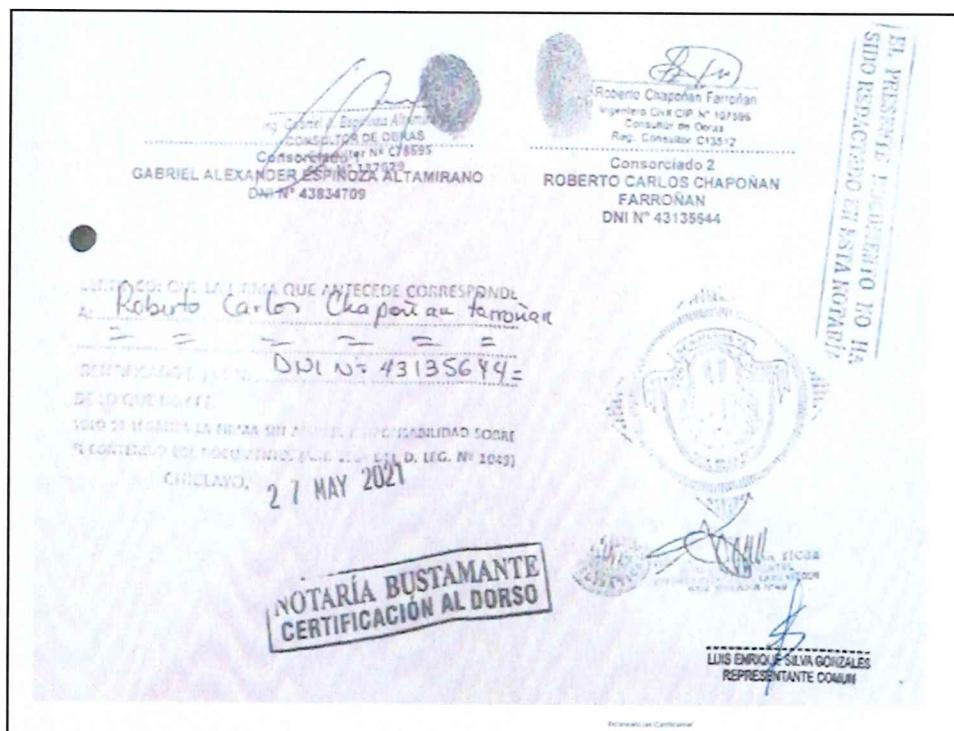 Ing. Gabriel A. Espinoza Altamirano
CONSULTOR DE OBRAS
Consorciado 1
GABRIEL ALEXANDER ESPINOZA ALTAMIRANO
DNI N° 43834709
Roberto Chapoñan Farroñan
Ingeniero Civil CIP. N° 107596
Consultor de Obras
Reg. Consultor C13512
Consorciado 2
ROBERTO CARLOS CHAPOÑAN
FARROÑAN
DNI N° 43135644
EL PRESENTE DOCUMENTO NO HA
SIDO REDACTADO EN ESTA NOTARÍA
CERTIFICO: QUE LA FIRMA QUE ANTECEDE CORRESPONDE
A: Roberto Carlos Chapoñan Farroñan
IDENTIFICADO DNI N° 43135644=
DE LO QUE DOY FE.
SOLO SE LEGALIZA LA FIRMA SIN RESPONSABILIDAD SOBRE
EL CONTENIDO DEL DOCUMENTO D. LEG. N° 1049)
CHICLAYO, 27 MAY 2021
NOTARÍA BUSTAMANTE
CERTIFICACIÓN AL DORSO
LUIS ENRIQUE SILVA GONZALES
REPRESENTANTE COMUN